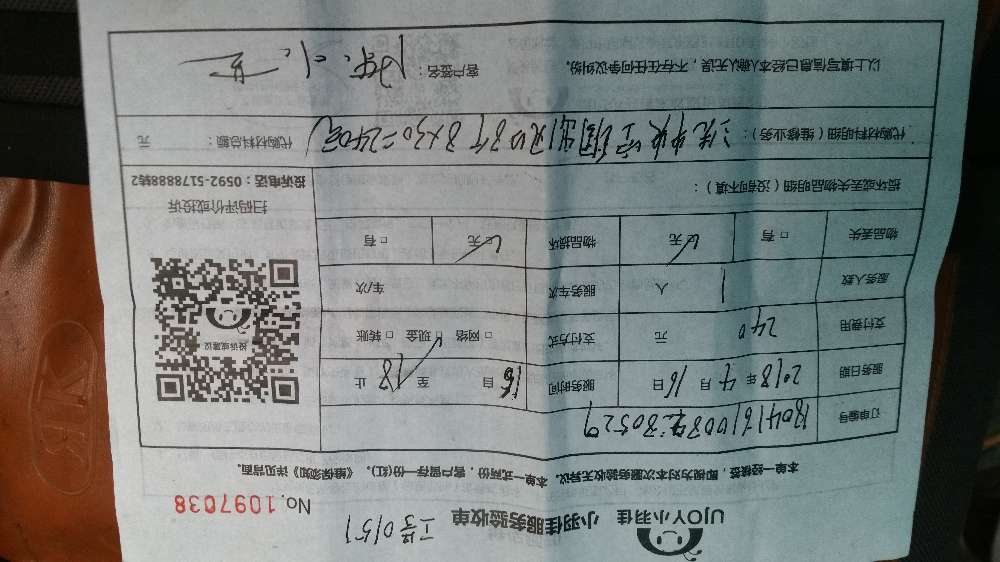 UJOY小羽佳 小羽佳服务验收单 工号0151 No.1097038
本单一经接签，即视为对本次服务验收无异议。本单一式两份，客户留存一份(红)。《维保须知》详见背面。
订单编号
服务日期 2018年4月16日 服务时间 16自 至18止
支付费用 240 元 支付方式 □网络 ☑现金 □转账
服务人数 1 人 服务车次 车/次
物品丢失 □有 ☑无 物品损坏 ☑无 □有
投诉或建议
扫码评价或投诉
投诉电话：0592-5178888转2
损坏或丢失物品明细（没有可不填）：
代购材料明细（维修业务）：洗中央空调出风口8个 8×30=240元 代购材料总额： 元
以上填写信息已经本人确认无误，不存在任何争议纠纷。 客户签名：